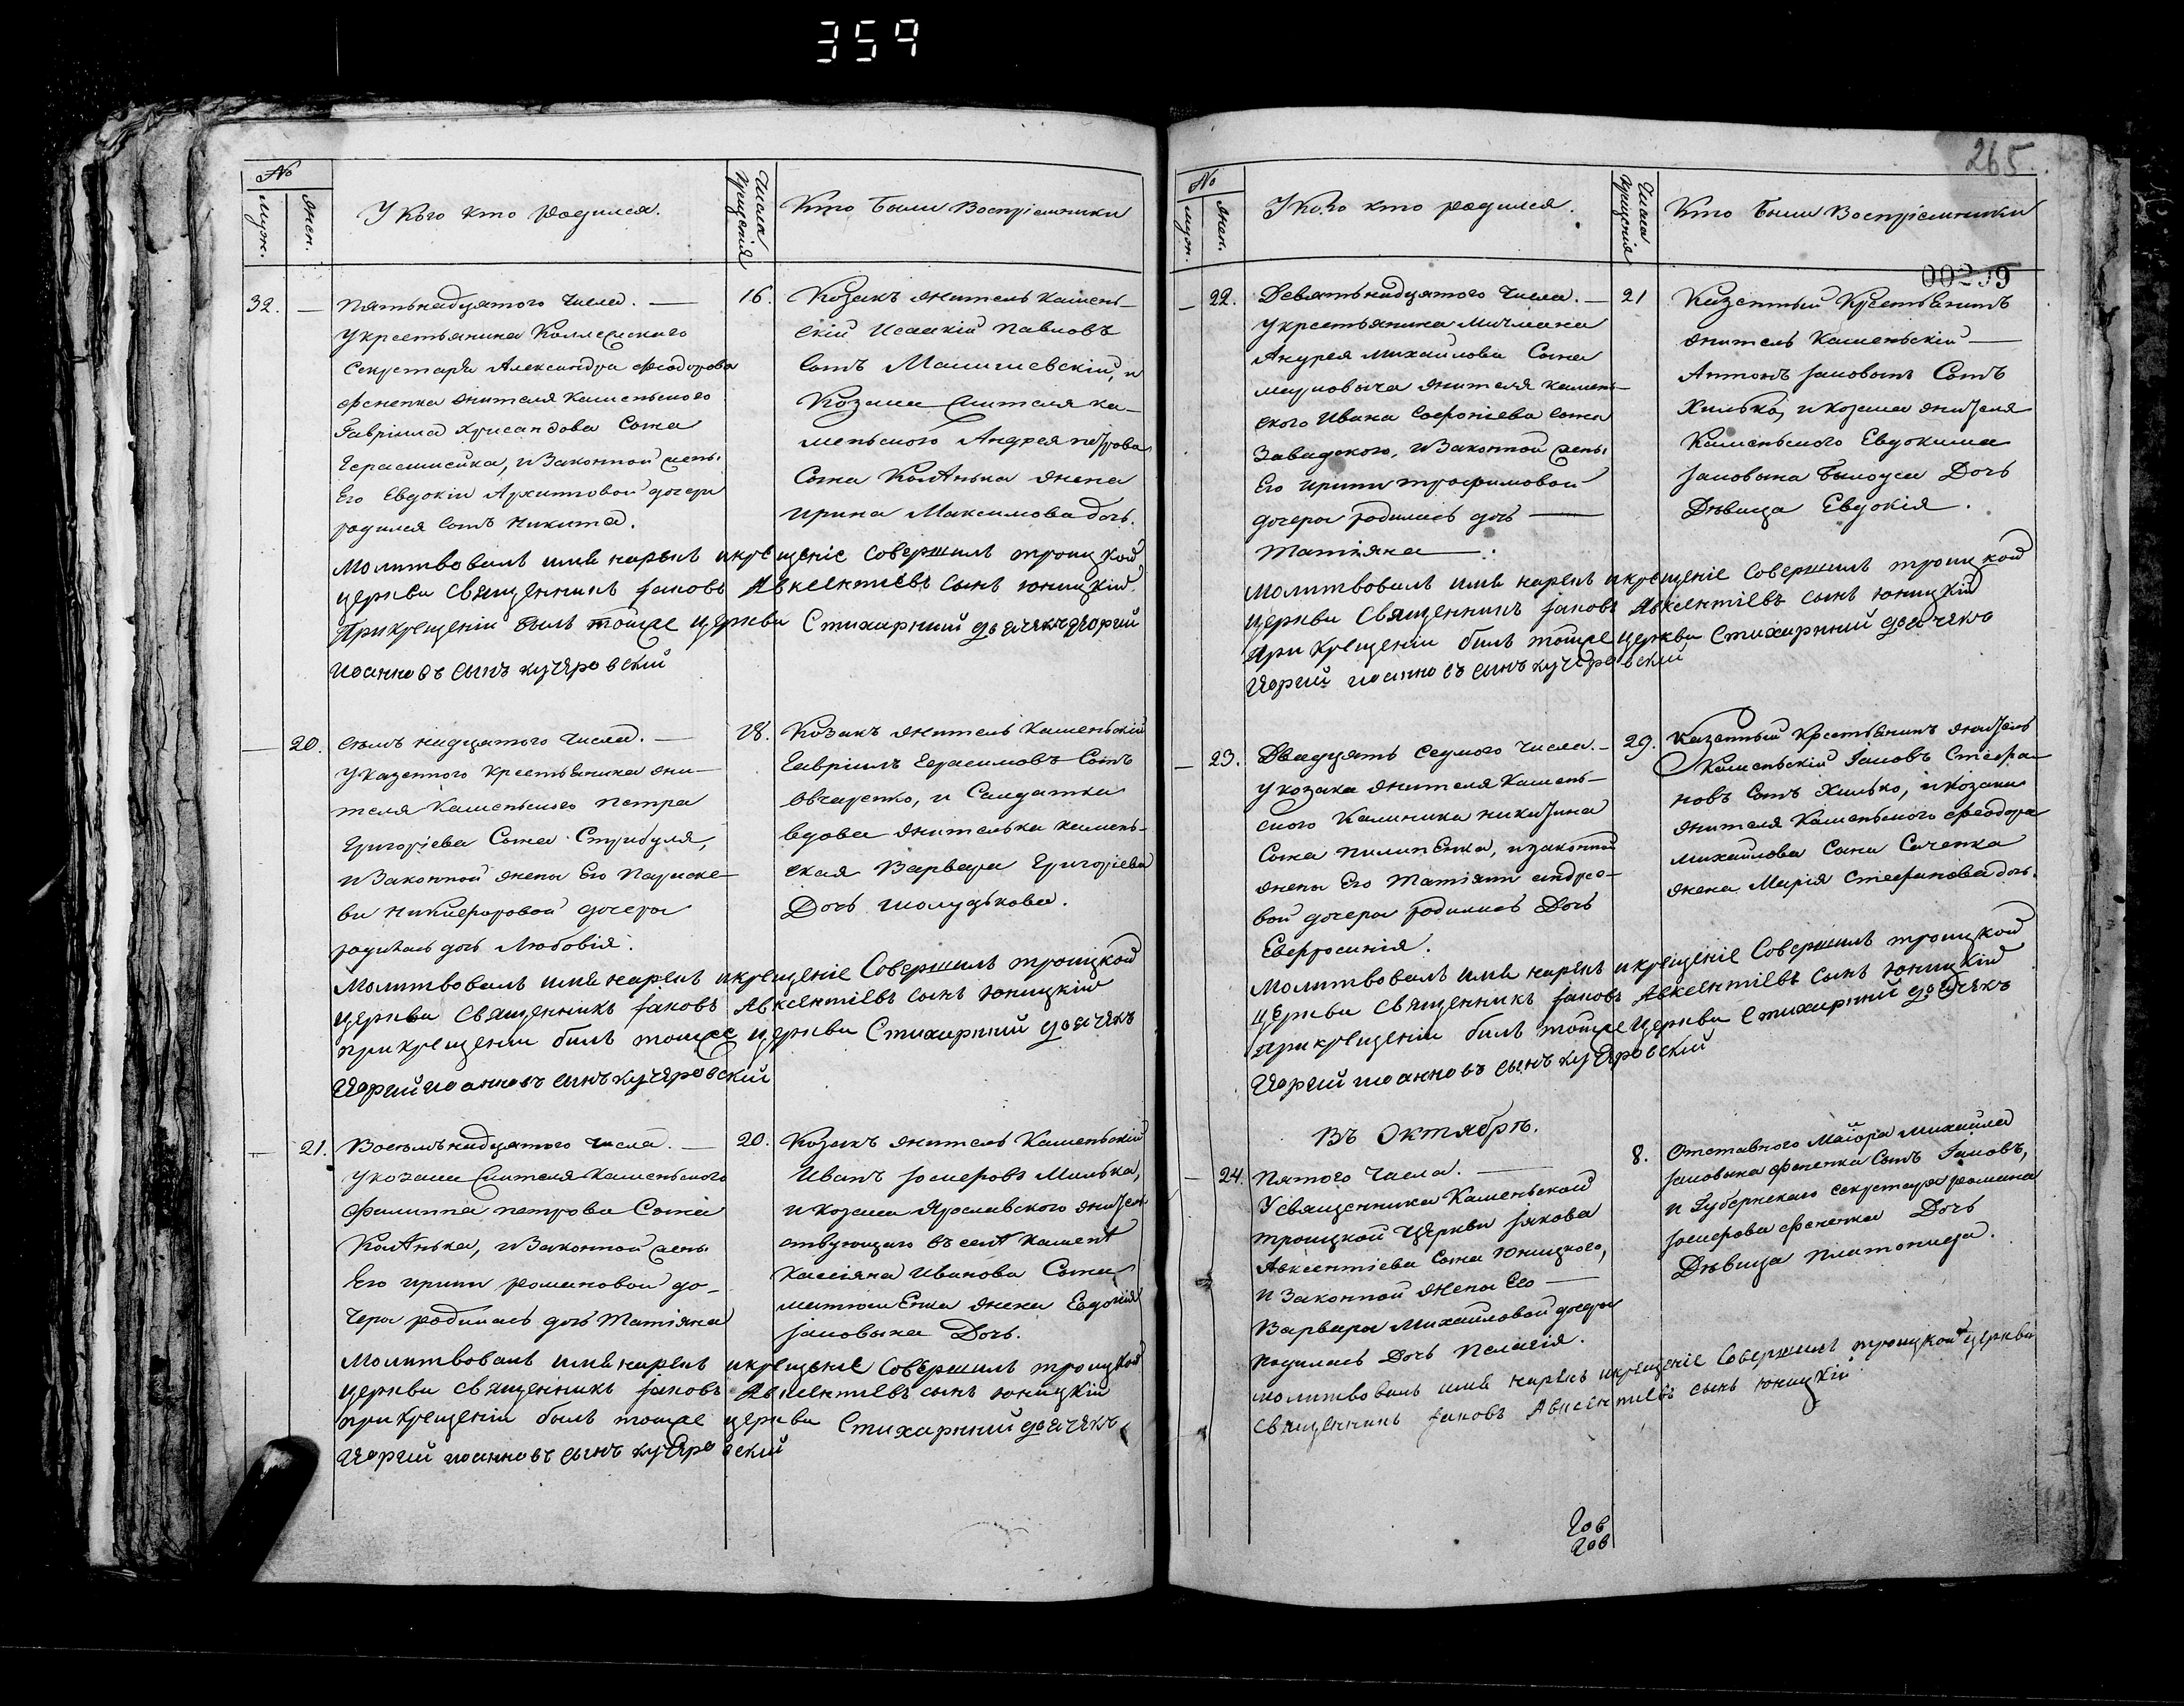 359
№
Муж.
Жен.
У кого кто родился.
Числа крещенія
Кто были Воспріемники
32. — Пятьнадцятого Числа. —
У крестьянина Коллежского
Секретаря Александра Феодорова
Фененка жителя Каменьского
Гавріила Хрисандова Сына
Герасимейка, и Законной жены
Его Евдокіи Архиповой дочери
родился Сынъ Никита.
16. Козакъ житель Камень-
скій Исаакій Павловъ
Сынъ Малишевскій, и
Козака жителя Ка-
меньского Андрея Петрова
Сына жена
Ирина Максимова дочь.
Молитвовалъ имя нарекъ и крещеніе совершилъ троицкой
церкви Священникъ Іаковъ Авксентіевъ сынъ Юницкій.
При крещеніи былъ тойже церкви Стихарний дьячекъ Георгий
Иоанновъ сынъ Кучеровский
— 20. Семьнадцятого Числа. —
У Казенного Крестьянина жи-
теля Каменьского Петра
Григоріева Сына Стрибуля,
и Законной жены Его Параске-
ви Никифоровой дочери
родилась дочь Любовія.
18. Козакъ житель Каменьскій
Гавріилъ Герасимовъ Сынъ
Овчаренко, и Салдатка
вдова жителька Камень-
ская Варвара Григоріева
Дочь Шолудькова.
Молитвовалъ имя нарекъ и крещеніе Совершилъ троицкой
церкви Священникъ Іаковъ Авксентіевъ сынъ Юницкій
при крещении былъ тойже церкви Стихарний дьячекъ
Георгий Иоанновъ сынъ Кучеровский
— 21. Восемьнадцятого Числа. —
У козака жителя Каменьского
Филиппа Петрова Сына
и Законной жены
Его Ирини Романовой до-
чери родилась дочь Татіяна
20. Козакъ житель Каменьскій
Иванъ Милька,
и козака Ярославского жител-
ствующаго въ селѣ Каменѣ
Кассіяна Иванова Сына
жена Евдокія
Іаковлева Дочь.
Молитвовалъ имя нарекъ и крещеніе совершилъ троицкой
церкви священникъ Іаковъ Авксентіевъ сынъ Юницкій
при крещеніи былъ тойже церкви Стихарний дьячекъ
Георгий Иоанновъ сынъ Кучеровский
265.
№
Муж.
Жен.
У Кого кто родился.
Числа крещенія
Кто были Воспріемники
00259
— 22. Девятьнадцятого Числа. —
У крестьянина Мичмана
Андрея Михайлова Сына
жителя Камень-
ского Ивана Софоніева Сына
Завадского, и Законной жены
Его Ирини Трофимовой
дочери родилась дочь —
Татіяна —.
21 Казенный Крестьянинъ
житель Каменьскій —
Антонъ Сынъ
Хилько, и козака жителя
Каменьского Евдокима
Белоуса Дочь
Дѣвица Евдокія.
Молитвовалъ имя нарекъ и крещеніе совершилъ троицкой
церкви Священникъ Іаковъ Авксентіевъ сынъ Юницкій
при Крещеніи былъ тойже церкви Стихарний дьячекъ
Георгий Иоанновъ сынъ Кучеровский
— 23. Двадцять Седмого Числа. —
У козака жителя Камень-
ского Калиника Никитина
Сына Пилипенка, и законной
жены Его Татіяни Андрее-
вой дочери родилась Дочь
Евфросинія.
29. Казенный Крестьянинъ житель
Каменьскій Іаковъ Стефа-
новъ Сынъ Хилько, и Козака
жителя Каменьского Феодора
Михайлова Сына Саченка
жена Марія Стефанова дочь.
Молитвовалъ имя нарекъ и крещеніе Совершилъ троицкой
церкви Священникъ Іаковъ Авксентіевъ сынъ Юницкій
При крещеніи былъ тойже церкви Стихарний дьячекъ
Георгий Иоанновъ сынъ Кучеровский
Въ Октябрѣ.
— 24. Пятого Числа. —
У священника Каменьской
Троицкой Церкви Іакова
Авксентіева Сына Юницкого,
и Законной жены Его —
Варвари Михайловой дочери
родилась Дочь Пелагія.
8. Отставного Маіора Михаила
Фененка Сынъ Іаковъ,
и Губернскаго секретаря Романа
Фененка Дочь
Дѣвица Платонида.
Молитвовалъ имя нарекъ и крещеніе Совершилъ троицкой церкви
Священникъ Іаковъ Авксентіевъ сынъ Юницкій